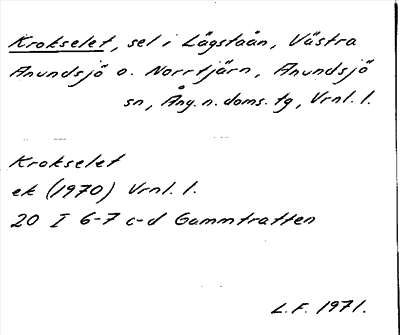 Krokselet, sel i Lågstaån, Västra
Anundsjö o. Norrtjärn, Anundsjö
sn, Ång. n. doms. tg, Vrnl. l.
Krokselet
ek (1970) Vrnl. l.
20 I 6-7 c-d Gammtratten
L.F. 1971.